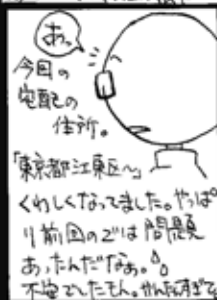 あっ
今回の
宅配の
住所。
「東京都江東区〜」
くわしくなってました。やっぱ
り前回の2は問題
あったんだなぁ。
不安でしたもん。かんたんすぎて